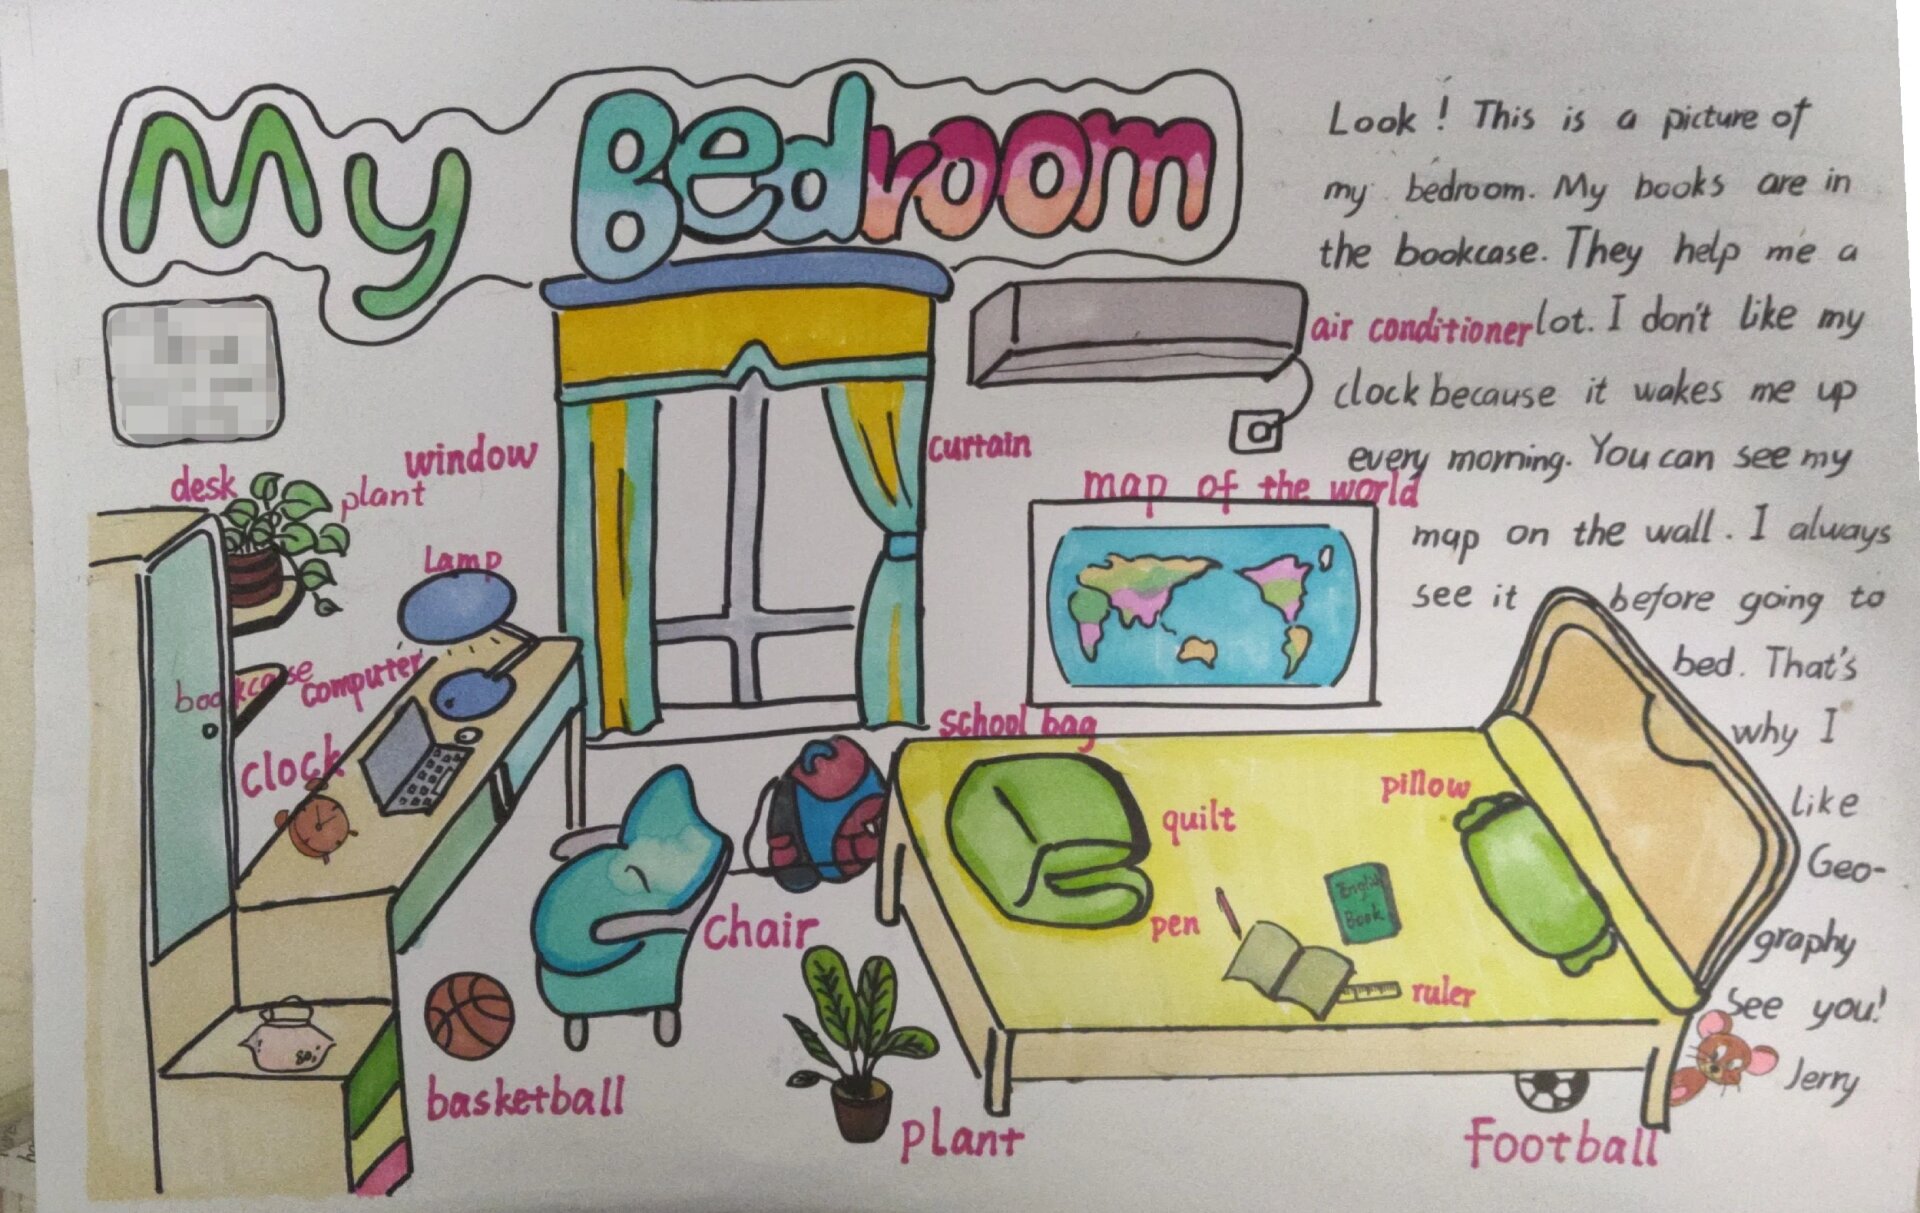 My Bedroom
Look! This is a picture of
my bedroom. My books are in
the bookcase. They help me a
lot. I don't like my
clock because it wakes me up
every morning. You can see my
map on the wall. I always
see it before going to
bed. That's
why I
like
Geo-
graphy
See you!
Jerry
air conditioner
window
curtain
map of the world
desk
plant
Lamp
bookcase
computer
clock
school bag
quilt
pillow
English
Book
pen
ruler
chair
basketball
plant
Football